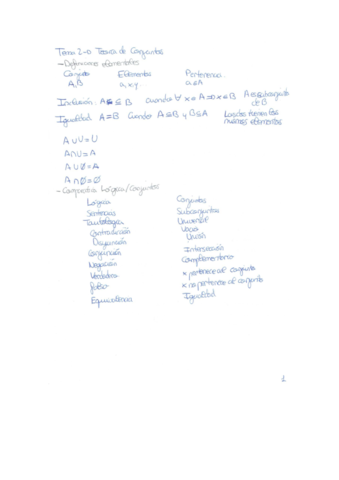 Tema 2-0 Teoría de Conjuntos
-Definiciones elementales
Conjunto Elementos Pertenencia
A,B a,x,y. a∈A
Inclusión. A⊆B cuando ∀ x∈A⇒x∈B A es subconjunto de B
Igualdad A=B Cuando A⊆B y B⊆A Los dos tienen los mismos elementos
A∪U=U
A∩U=A
A∪Ø=A
A∩Ø=Ø
-Comparativa Lógica/Conjuntos
Lógica Conjuntos
Sentencias Subconjuntos
Tautológica Universal
Contradicción Vacío
Disyunción Unión
Conjunción Intersección
Negación Complementario
Verdadera x pertenece al conjunto
falso x no pertenece al conjunto
Equivalencia Igualdad
1